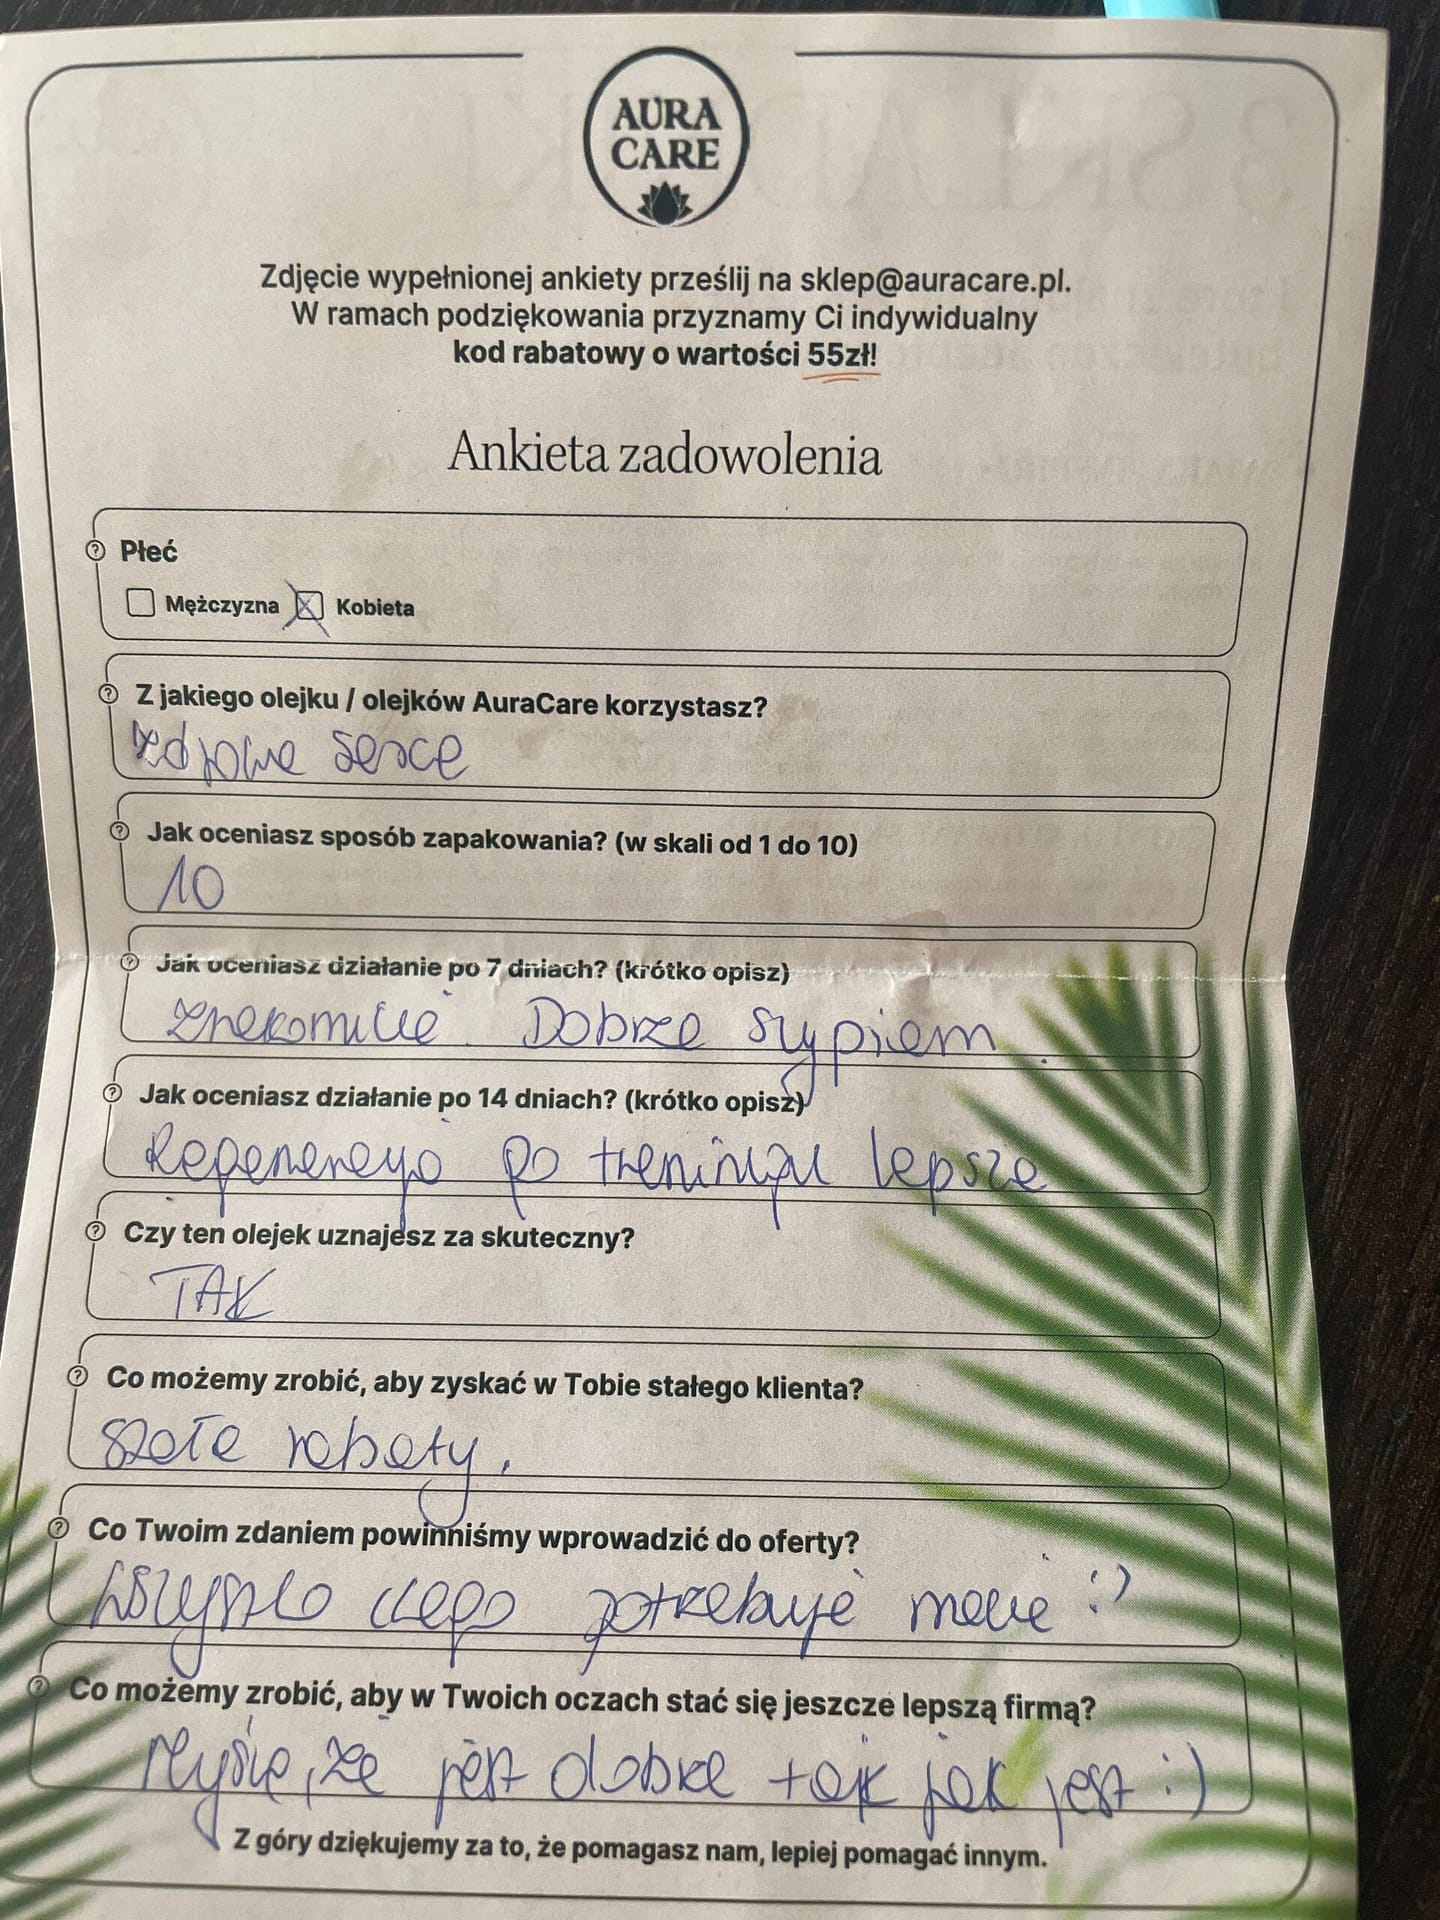 AURA
CARE
Zdjęcie wypełnionej ankiety prześlij na sklep@auracare.pl.
W ramach podziękowania przyznamy Ci indywidualny
kod rabatowy o wartości 55zł!
Ankieta zadowolenia
Płeć
Mężczyzna Kobieta
Z jakiego olejku / olejków AuraCare korzystasz?
zdrowe serce
Jak oceniasz sposób zapakowania? (w skali od 1 do 10)
10
Jak oceniasz działanie po 7 dniach? (krótko opisz)
znakomicie Dobrze sypiam.
Jak oceniasz działanie po 14 dniach? (krótko opisz)
Regeneracja po treningu lepsza
Czy ten olejek uznajesz za skuteczny?
TAK
Co możemy zrobić, aby zyskać w Tobie stałego klienta?
stałe rabaty.
Co Twoim zdaniem powinniśmy wprowadzić do oferty?
Wszystko czego potrzebuję macie :)
Co możemy zrobić, aby w Twoich oczach stać się jeszcze lepszą firmą?
Myślę, że jest dobrze tak jak jest :)
Z góry dziękujemy za to, że pomagasz nam, lepiej pomagać innym.